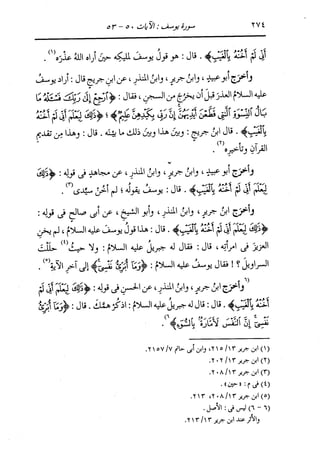 ٢٧٤ سورة يوسف : الآيات ٥٠ - ٥٣
أَنِّي لَمْ أَخُنْهُ بِالْغَيْبِ﴾ . قال : هو قولُ يوسفَ لمليكِه حينَ أراه اللهُ عذرَه(١) .
وأخرَج أبو عبيدٍ ، وابنُ جريرٍ ، وابنُ المنذرِ ، عن ابنِ جريجٍ قال : أراد يوسفُ
عليه السلامُ العذرَ قبلَ أن يخرُجَ من السجنِ ، فقال : ﴿ارْجِعْ إِلَى رَبِّكَ فَسْئَلْهُ مَا
بَالُ النِّسْوَةِ الَّتِي قَطَّعْنَ أَيْدِيَهُنَّ إِنَّ رَبِّي بِكَيْدِهِنَّ عَلِيمٌ﴾ ؛ ﴿ذَلِكَ لِيَعْلَمَ أَنِّي لَمْ أَخُنْهُ
بِالْغَيْبِ﴾ . قال ابنُ جريجٍ : وبينَ هذا وبينَ ذلك ما بينَه . قال : وهذا مِن تقديمِ
القرآنِ وتأخيرِه(٢) .
وأخرَج أبو عبيدٍ ، وابنُ جريرٍ ، وابنُ المنذرِ ، عن مجاهدٍ في قولِه : ﴿ذَلِكَ
لِيَعْلَمَ أَنِّي لَمْ أَخُنْهُ بِالْغَيْبِ﴾ . قال : يوسفُ يقولُه ؛ لم أخُنْ سيِّدى(٣) .
وأخرَج ابنُ جريرٍ ، وابنُ المنذرِ ، وأبو الشيخِ ، عن أبى صالحٍ في قولِه :
﴿ذَلِكَ لِيَعْلَمَ أَنِّي لَمْ أَخُنْهُ بِالْغَيْبِ﴾ . قال : هذا قولُ يوسفَ عليه السلامُ ، لم يخنِ
العزيزَ في امرأتِه . قال : فقال له جبريلُ عليه السلامُ : ولا حيثُ(٤) حلَلْتَ
السراويلَ ؟! فقال يوسفُ عليه السلامُ : ﴿وَمَا أُبَرِّئُ نَفْسِي﴾ إلى آخرِ الآيةِ(٥) .
(٦)وأخرَج ابنُ جريرٍ ، وابنُ المنذرِ ، عن الحسنِ في قولِه : ﴿ذَلِكَ لِيَعْلَمَ أَنِّي لَمْ
أَخُنْهُ بِالْغَيْبِ﴾ . قال : قال له جبريلُ عليه السلامُ : اذكُرْ همَّك . قال : ﴿وَمَا أُبَرِّئُ
نَفْسِي إِنَّ النَّفْسَ لَأَمَّارَةٌ بِالسُّوءِ﴾(٦) .
(١) ابن جرير ١٣/ ٢١٥، وابن أبى حاتم ٧/ ٢١٥٧.
(٢) ابن جرير ١٣/ ٢٠٢.
(٣) ابن جرير ١٣/ ٢٠٨.
(٤) فى م : « حين » .
(٥) ابن جرير ١٣/ ٢٠٨، ٢١٣.
(٦ - ٦) ليس فى : الأصل .
والأثر عند ابن جرير ١٣/ ٢١٣.